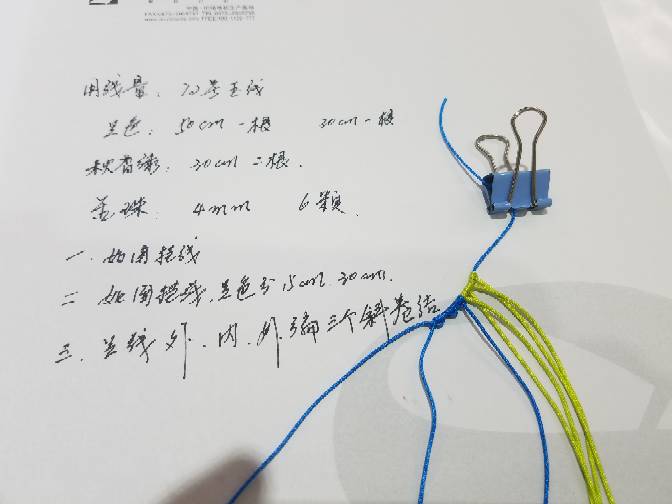 用线量: 72号玉线
兰色: 50cm 一根 30cm 一根
秋香绿: 30cm 二根.
盖珠: 4mm 6颗.
一. 如图搭线
二. 如图搭线, 兰色分15cm、30cm.
三. 兰线外、内、外编三个斜卷结